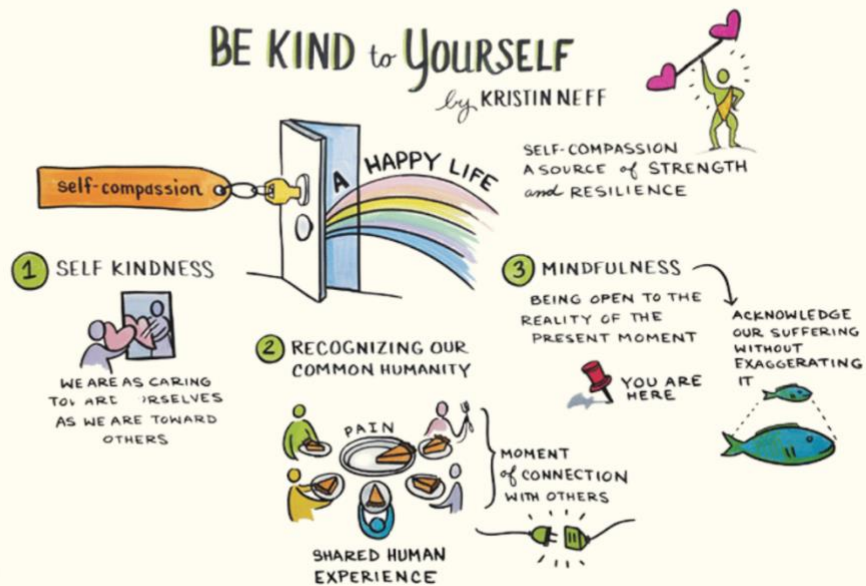 BE KIND to YOURSELF
by KRISTIN NEFF
self-compassion
A HAPPY LIFE
SELF-COMPASSION
A SOURCE of STRENGTH
and RESILIENCE
1 SELF KINDNESS
WE ARE AS CARING
AS WE ARE TOWARD
OTHERS
2 RECOGNIZING OUR
COMMON HUMANITY
PAIN
MOMENT
of CONNECTION
WITH OTHERS
SHARED HUMAN
EXPERIENCE
3 MINDFULNESS
BEING OPEN TO THE
REALITY OF THE
PRESENT MOMENT
YOU ARE
HERE
ACKNOWLEDGE
OUR SUFFERING
WITHOUT
EXAGGERATING
IT